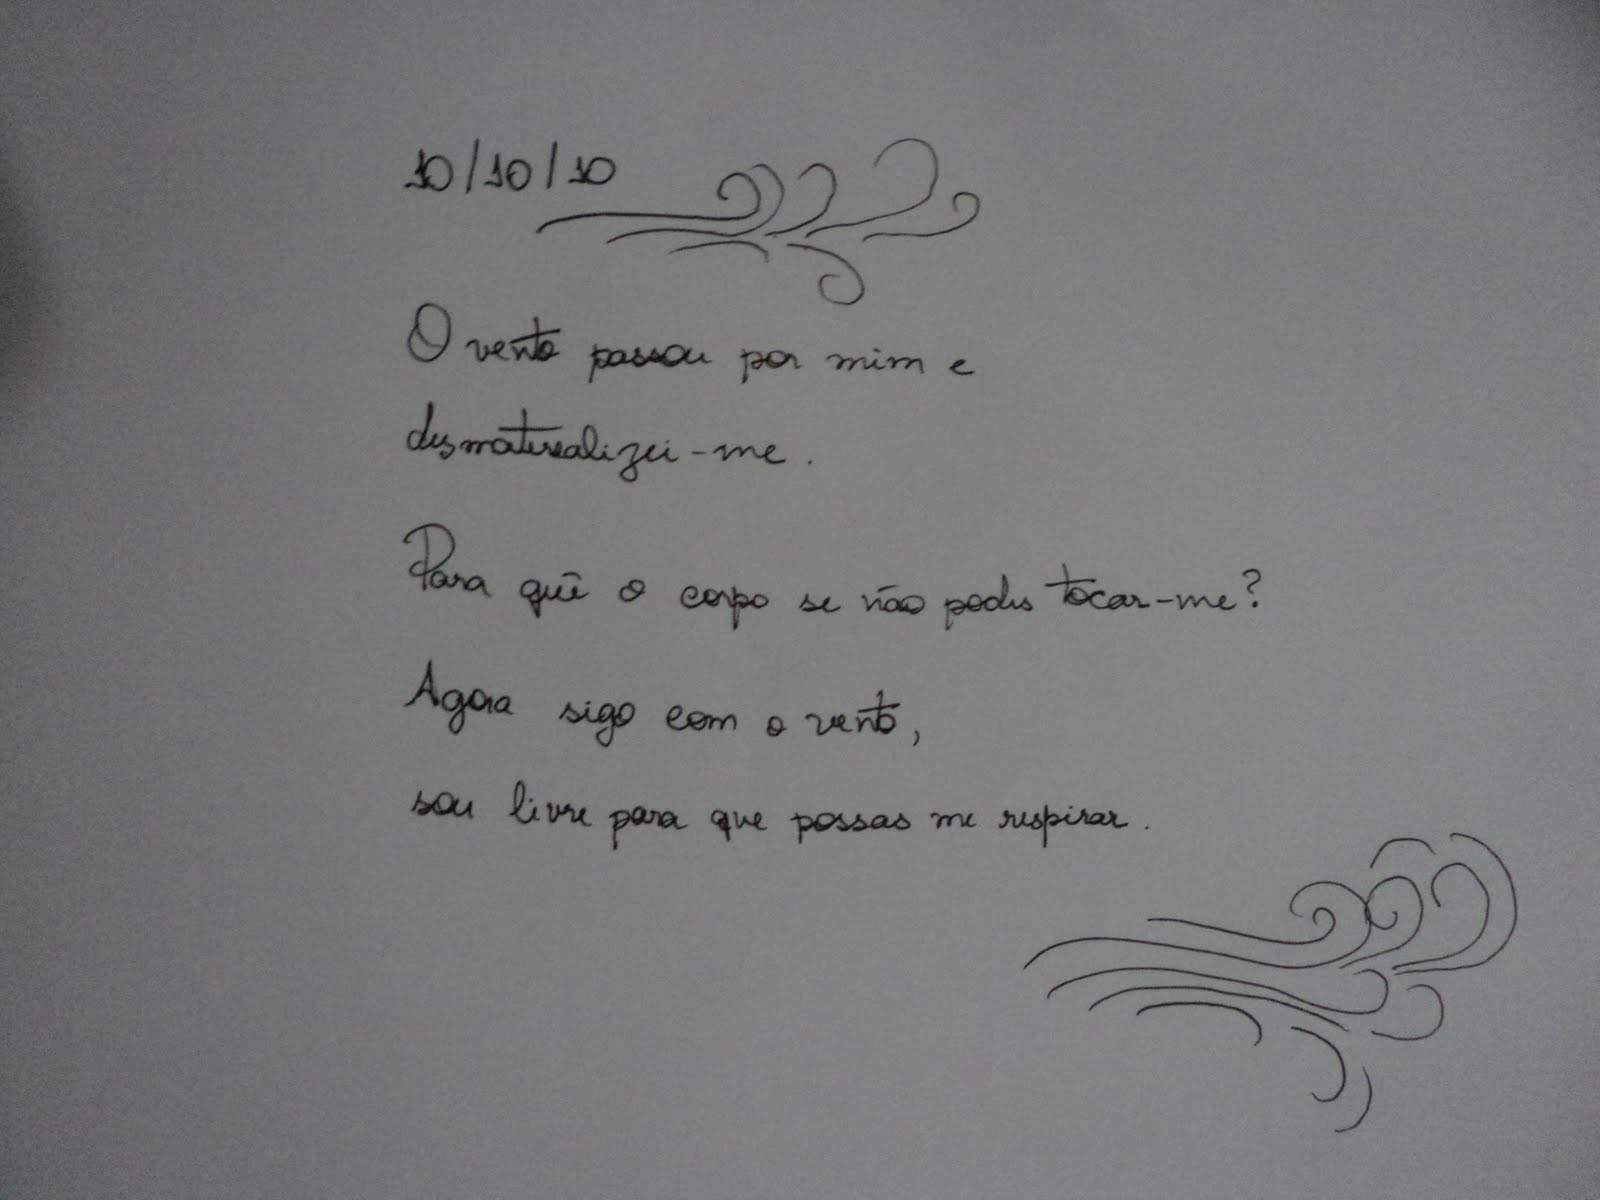 10/10/10
O vento passou por mim e
desmaterealizei-me.
Para quê o corpo se não podes tocar-me?
Agora sigo com o vento,
sou livre para que possas me respirar.